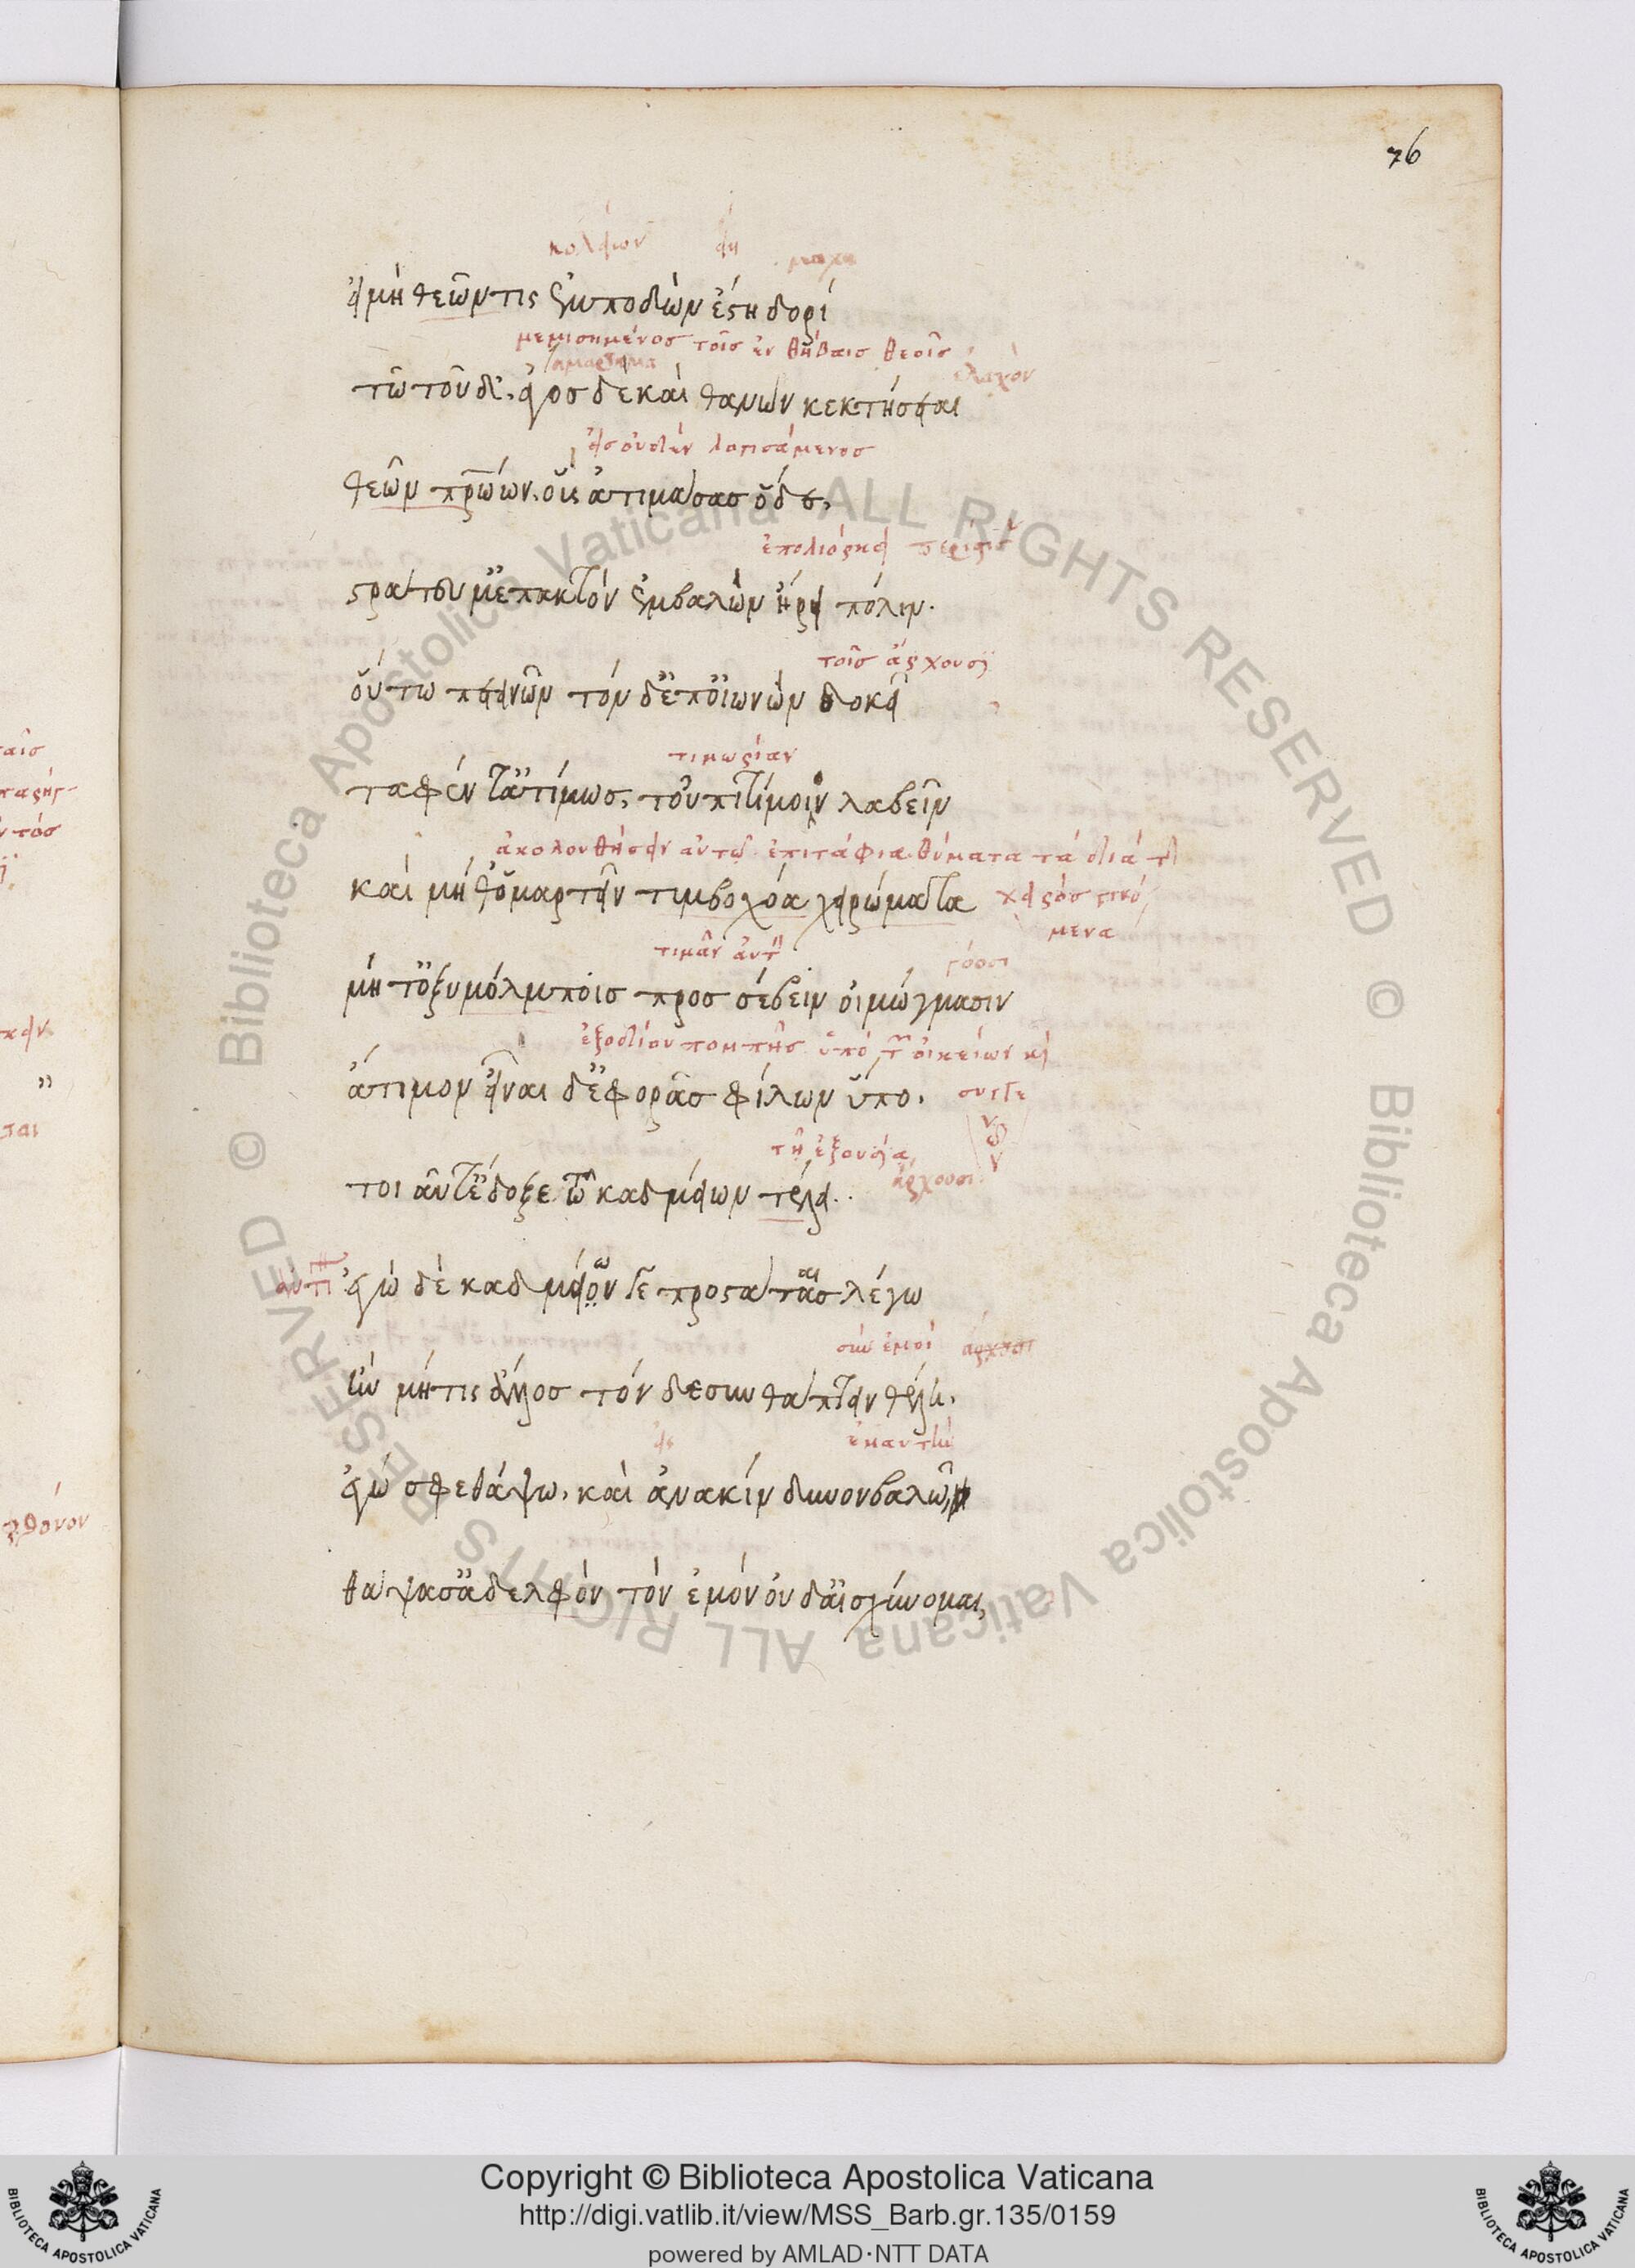 76
κωλύων
εἰ μὴ θεῶν τις ἐμποδὼν ἔστη δορὶ
μεμισημένος τοῖς ἐν θήβαις θεοῖς
τῶ τοῦδ'. ἄγος δὲ καὶ θανὼν κεκτήσεται
οὐδὲν λογισάμενος
θεῶν πατρώων. οὓς ἀτιμάσας ὅδε,
ἐπολιόρκει
στράτευμ' ἐπακτὸν ἐμβαλὼν ἥρει πόλιν.
τοῖς ἄρχουσι
οὕτω πετεινῶν τόνδ' ἐπ' οἰωνῶν δοκεῖ
τιμωρίαν
ταφέντ' ἀτίμως, τοὐπιτίμιον λαβεῖν
ἀκολουθήσειν αὐτῶ ἐπιτάφια θύματα τὰ διὰ
καὶ μήθ' ὁμαρτεῖν τυμβοχόα χειρώματα
χειρὸς γινό
μενα
τιμᾶν αὐτὸν
γόοσι
μήτ' ὀξυμόλποις προσσέβειν οἰμώγμασιν
ἐξοδίου πομπῆς ὑπὸ τῶν οἰκείων καὶ
ἄτιμον εἶναι δ' ἐκφορᾶς φίλων ὕπο.
συγγε
νῶν
τῆ ἐξουσία
ἄρχουσι
τοιαῦτ' ἔδοξε τῶ καδμείων τέλει.
ἀντι ἐγὼ δὲ καδμείων γε προστάταις λέγω
σὺν ἐμοὶ
ἢν μή τις ἄλλος τόνδε συνθάπτειν θέλη.
ἐμαυτὴν
ἐγώ σφε θάψω. καὶ ἀνὰ κίνδυνον βαλῶ
θάψασ' ἀδελφὸν τὸν ἐμὸν οὐδ' αἰσχύνομαι,
Copyright © Biblioteca Apostolica Vaticana
http://digi.vatlib.it/view/MSS_Barb.gr.135/0159
powered by AMLAD·NTT DATA
BIBLIOTECA APOSTOLICA VATICANA
BIBLIOTECA APOSTOLICA VATICANA
© Biblioteca Apostolica Vaticana ALL RIGHTS RESERVED © Biblioteca Apostolica Vaticana ALL RIGHTS RESERVED